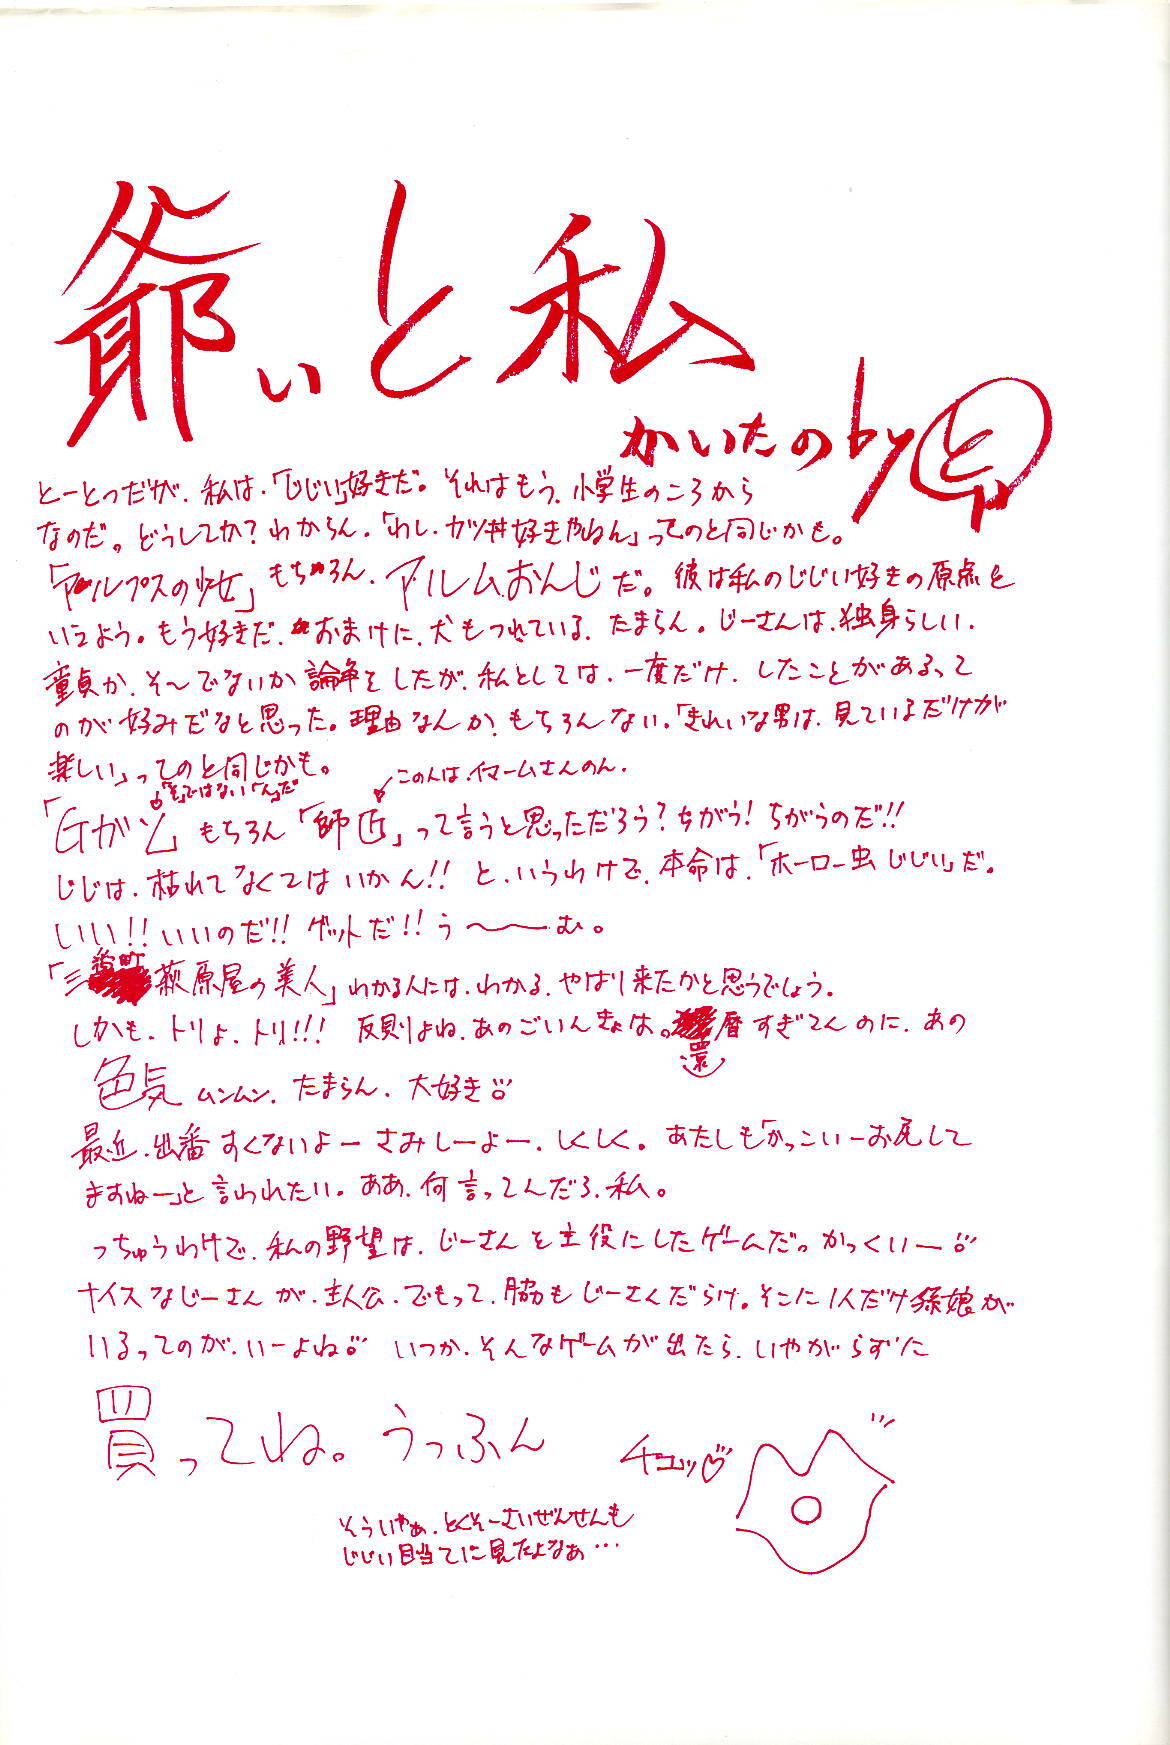 爺ぃと私
かいたのby と
とーとつだが、私は、「じじい」好きだ。それはもう、小学生のころから
なのだ。どうしてか？わからん。「わし、カツ丼好きやねん」ってのと同じかも。
「アルプスの少女」もちろん、アルムおんじだ。彼は私のじじい好きの原点と
いえよう。もう好きだ、おまけに、犬もつれている、たまらん。じーさんは、独身らしい、
童貞か、そ〜でないか論争をしたが、私としては、一度だけ、したことがあるって
のが好みだなと思った。理由なんか、もちろんない。「きれいな男は、見ているだけが
楽しい」ってのと同じかも。
「そ」ではない「ん」だ
このんは、イマームさんのん。
「Gガン」もちろん「師匠」って言うと思っただろう？ちがう！ちがうのだ!!
じじは、枯れてなくてはいかん!! と、いうわけで、本命は、「ホーロー虫じじい」だ。
しいい!! いいのだ!! ゲットだ!! う〜〜む。
「三番町萩原屋の美人」わかる人には、わかる、やはり来たかと思うでしょう。
しかも、トリよ、トリ!!! 反則よね、あのごいんきょは。還暦すぎてんのに、あの
色気ムンムン、たまらん、大好き
最近、出番すくないよーさみしーよー、しくしく。あたしも「かっこいーお尻して
ますねー」と言われたい。ああ、何言ってんだろ、私。
っちゅうわけで、私の野望は、じーさんを主役にしたゲームだ。かっくいー
ナイスなじーさんが、主人公、でもって、脇もじーさんだらけ。そこに1人だけ孫娘が
いるってのが、いーよね いつか、そんなゲームが出たら、いやがらずに
買ってね。うっふん
チュッ♡
そういやぁ、とくそーさいぜんせんも
じじい目当てに見たよなぁ…